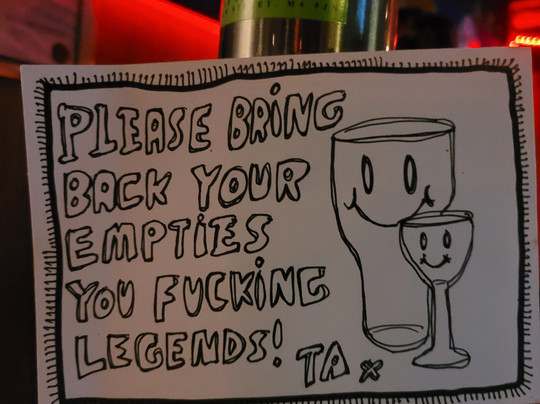 PLEASE BRING
BACK YOUR
EMPTIES
YOU FUCKING
LEGENDS! TA x